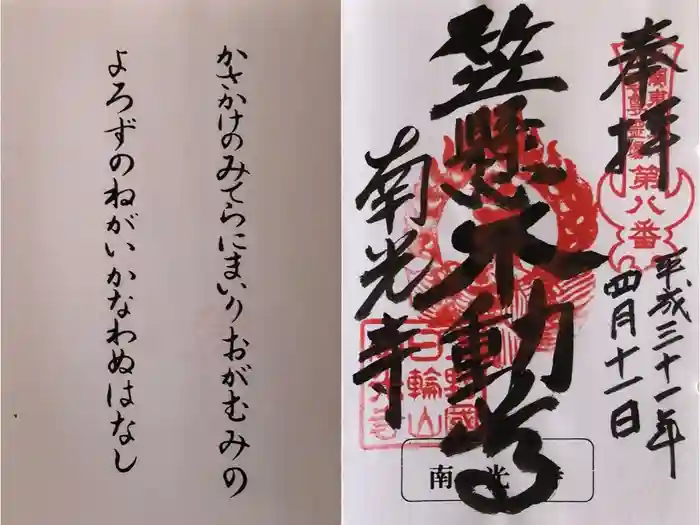 奉拝
第八番
平成三十一年
四月十一日
笠懸不動尊
南光寺
日輪山
南光寺
かさかけのみてらにまいりおがむみの
よろずのねがいかなわぬはなし